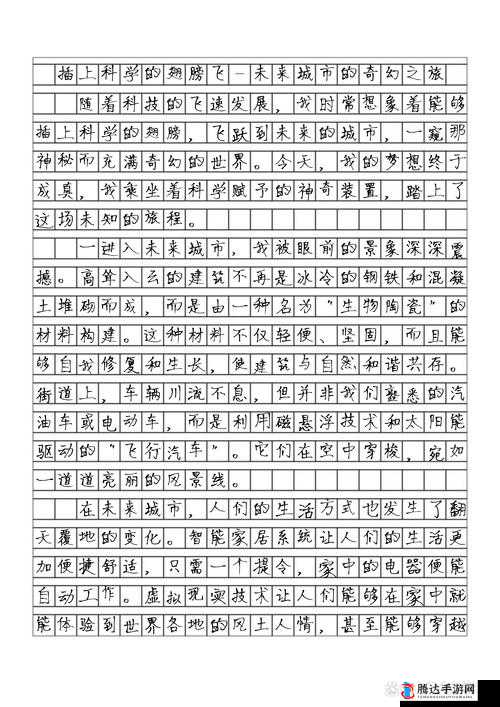 插上科学的翅膀飞—未来城市的奇幻之旅
随着科技的飞速发展，我时常想象着能够
插上科学的翅膀，飞跃到未来的城市，一窥那
神秘而充满奇幻的世界。今天，我的梦想终于
成真，我乘坐着科学赋予的神奇装置，踏上了
这场未知的旅程。
一进入未来城市，我被眼前的景象深深震
撼。高耸入云的建筑不再是冰冷的钢铁和混凝
土堆砌而成，而是由一种名为“生物陶瓷”的
材料构建。这种材料不仅轻便、坚固，而且能
够自我修复和生长，使建筑与自然和谐共存。
街道上，车辆川流不息，但并非我们熟悉的汽
油车或电动车，而是利用磁悬浮技术和太阳能
驱动的“飞行汽车”。它们在空中穿梭，宛如
一道道亮丽的风景线。
在未来城市，人们的生活方式也发生了翻
天覆地的变化。智能家居系统让人们的生活更
加便捷舒适，只需一个指令，家中的电器便能
自动工作。虚拟现实技术让人们能够在家中就
能体验到世界各地的风土人情，甚至能够穿越
腾达手游网